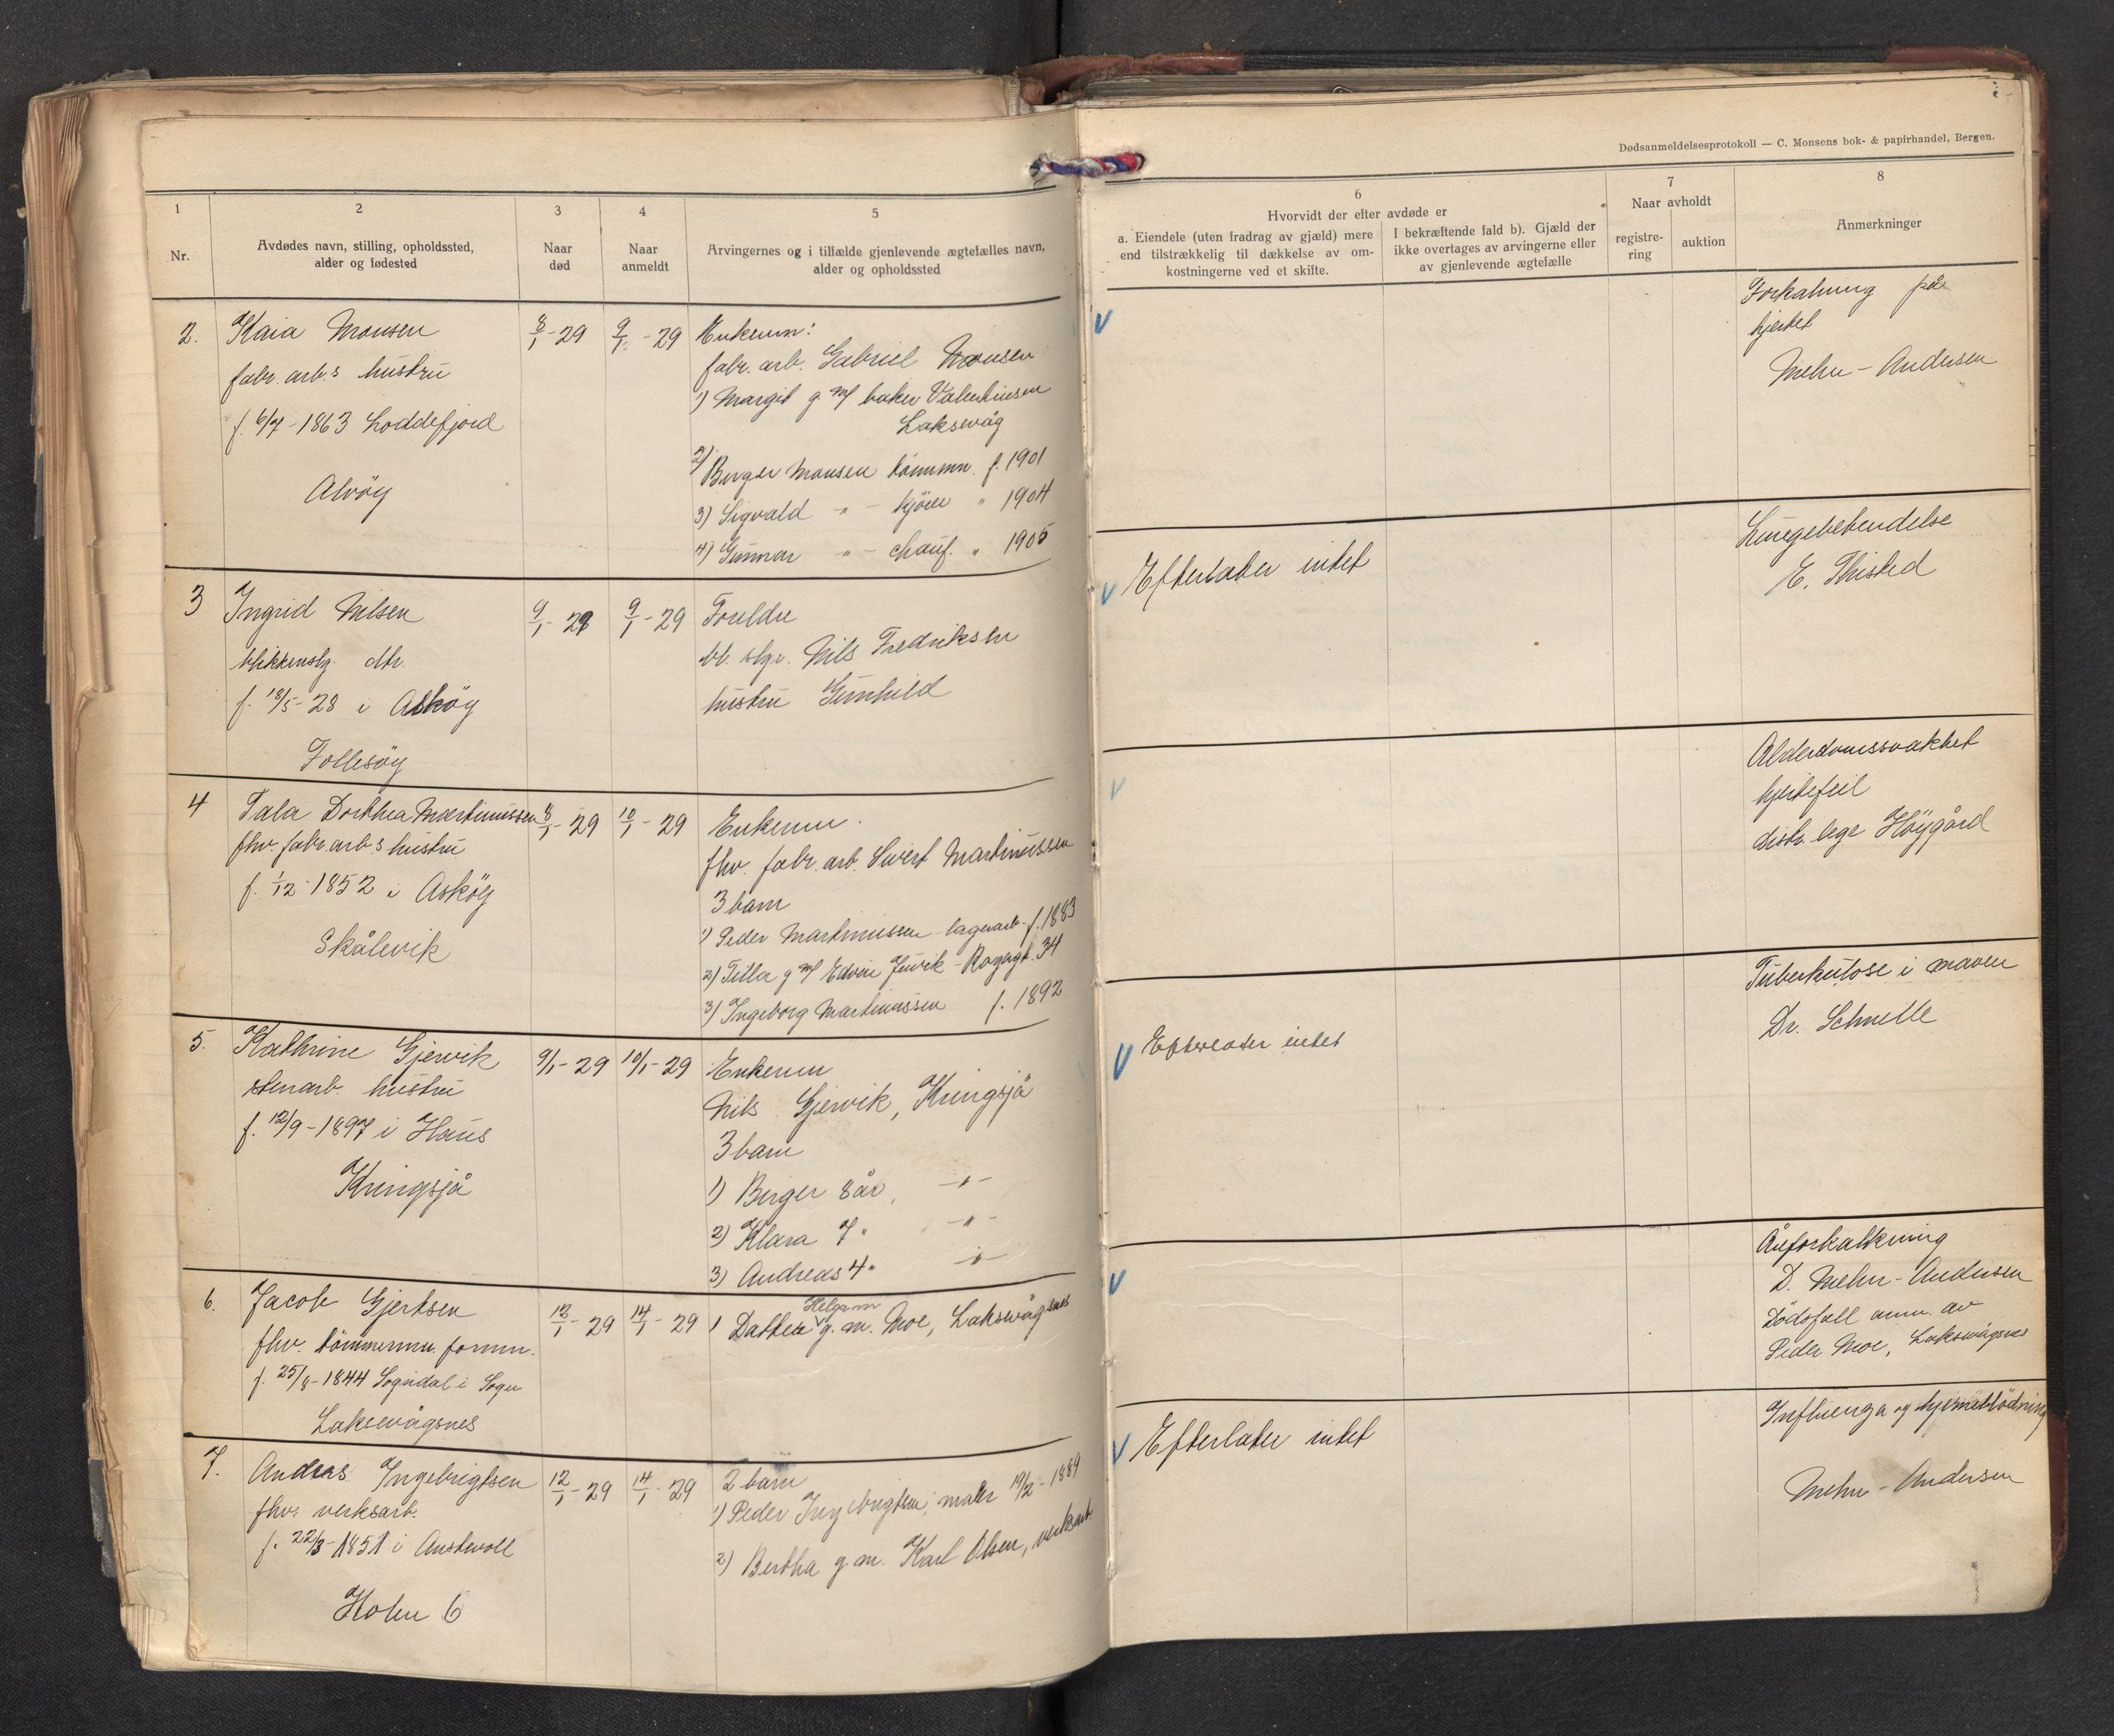 Dødsanmeldelsesprotokoll — C. Monsens bok- & papirhandel, Bergen.
1
Nr.
2
Avdødes navn, stilling, opholdssted,
alder og fødested
3
Naar
død
4
Naar
anmeldt
5
Arvingernes og i tilfælde gjenlevende ægtefælles navn,
alder og opholdssted
6
Hvorvidt der efter avdøde er
a. Eiendele (uten fradrag av gjæld) mere
end tilstrækkelig til dækkelse av om-
kostningerne ved et skifte.
I bekræftende fald b). Gjæld der
ikke overtages av arvingerne eller
av gjenlevende ægtefælle
7
Naar avholdt
registre-
ring
auktion
8
Anmerkninger
2.
Kaia Monsen
fabr. arb.s hustru
f. 6/7 - 1863 Loddefjord
Alvöy
8/1 - 29
9/1 - 29
Enkemn:
fabr. arb. Gabriel Monsen
1) Margit g m/ baker Valentinsen
Laksevåg
2) Birger Monsen tömmn. f. 1901
3) Sigvald " - kjörer " 1904
4) Gunnar " - chauf. " 1905
Forkalkning på
hjertet
Mehn - Andersen
3
Ingrid Nilsen
blikkenslg. dtr.
f. 18/5 - 28 i Asköy
Follesöy
9/1 - 29
9/1 - 29
Foreldre
bl. slgr. Nils Fredriksen
hustru Gunhild
Efterlater intet
Lungebetendelse
E. Thisted
4
Tala Dorthea Martinussen
fhv. fabr. arb.s hustru
f. 1/12 - 1852 i Asköy
Skålevik
8/1 - 29
10/1 - 29
Enkemn.
fhv. fabr. arb. Sivert Martinussen
3 barn
1) Peder Martinussen lagerarb. f. 1883
2) Tilla g m/ Edvin - 34
3) Ingeborg Martinussen f. 1892
Alderdomssvakhet
hjertefeil
distr. lege Höygård
5.
Kathrine Gjervik
stenarb. hustru
f. 12/9 - 1897 i Haus
Kringsjå
9/1 - 29
10/1 - 29
Enkemn
Nils Gjervik, Kringsjå
3 barn
1) Birger 8 år, - " -
2) Klara 7 " - " -
3) Andreas 4 " - " -
Efterlater intet
Tuberkulose i maven
Dr. Schnelle
6.
Jacob Gjertsen
fhv. tömmermn. formn.
f. 25/8 - 1844 Sogndal i Sogn
Laksevågsnes
12/1 - 29
14/1 - 29
1 Datter g. m. Moe, Laksevågsnes
Åreforkalkning
D. Mehn - Andersen
Dödsfall anm. av
Peder Moe, Laksevågsnes
7.
Andreas Ingebrigtsen
fhv. verksarb.
f. 22/3 - 1851 i Austevoll
Holen 6
12/1 - 29
14/1 - 29
2 barn
1) Peder Ingebrigtsen, maler 19/2 - 1889
2) Bertha g. m. Karl Olsen, verksarb
Efterlater intet
Influenza og hjerneblödning
Mehn - Andersen